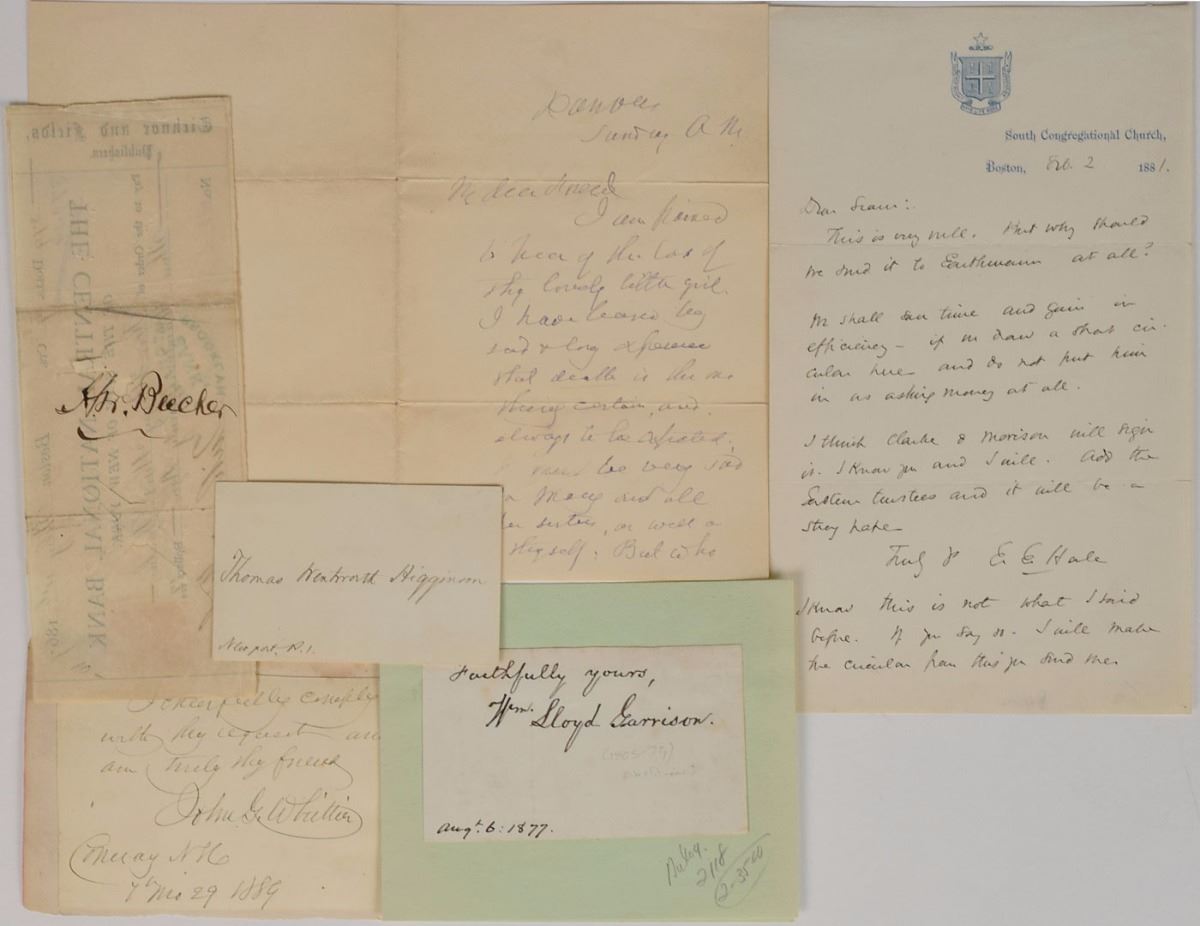 Danvers
Sunday A M.
My dear friend
I am pained
to hear of the loss of
thy lovely little girl.
I have learned by
sad & long experience
that death is the one
thing certain, and
always to be expected.
be very sad
Mary and all
her sisters, as well as
thyself: But who
South Congregational Church,
Boston, Feb. 2 1881.
This is very well. But why should
we send it to at all?
We shall save time and gain in
efficiency – if we draw a short cir-
cular here and do not put him
in as asking money at all.
I think Clarke & Morison will sign
it. I know you and I will. Add the
Eastern trustees and it will be a
strong paper
Truly yrs E. E. Hale
I know this is not what I said
before. If you say so. I will make
the circular from this you send me
Ticknor and Fields,
Publishers.
No.
Pay to the Order of
THE CENTRAL NATIONAL BANK
Boston
186
H. W. Beecher
Thomas Wentworth Higginson
Newport, R.I.
Faithfully yours,
Wm. Lloyd Garrison.
Augt. 6: 1877.
2118
I cheerfully comply
with thy request and
am truly thy friend
John G. Whittier
Conway N H
7th Mo 29 1889